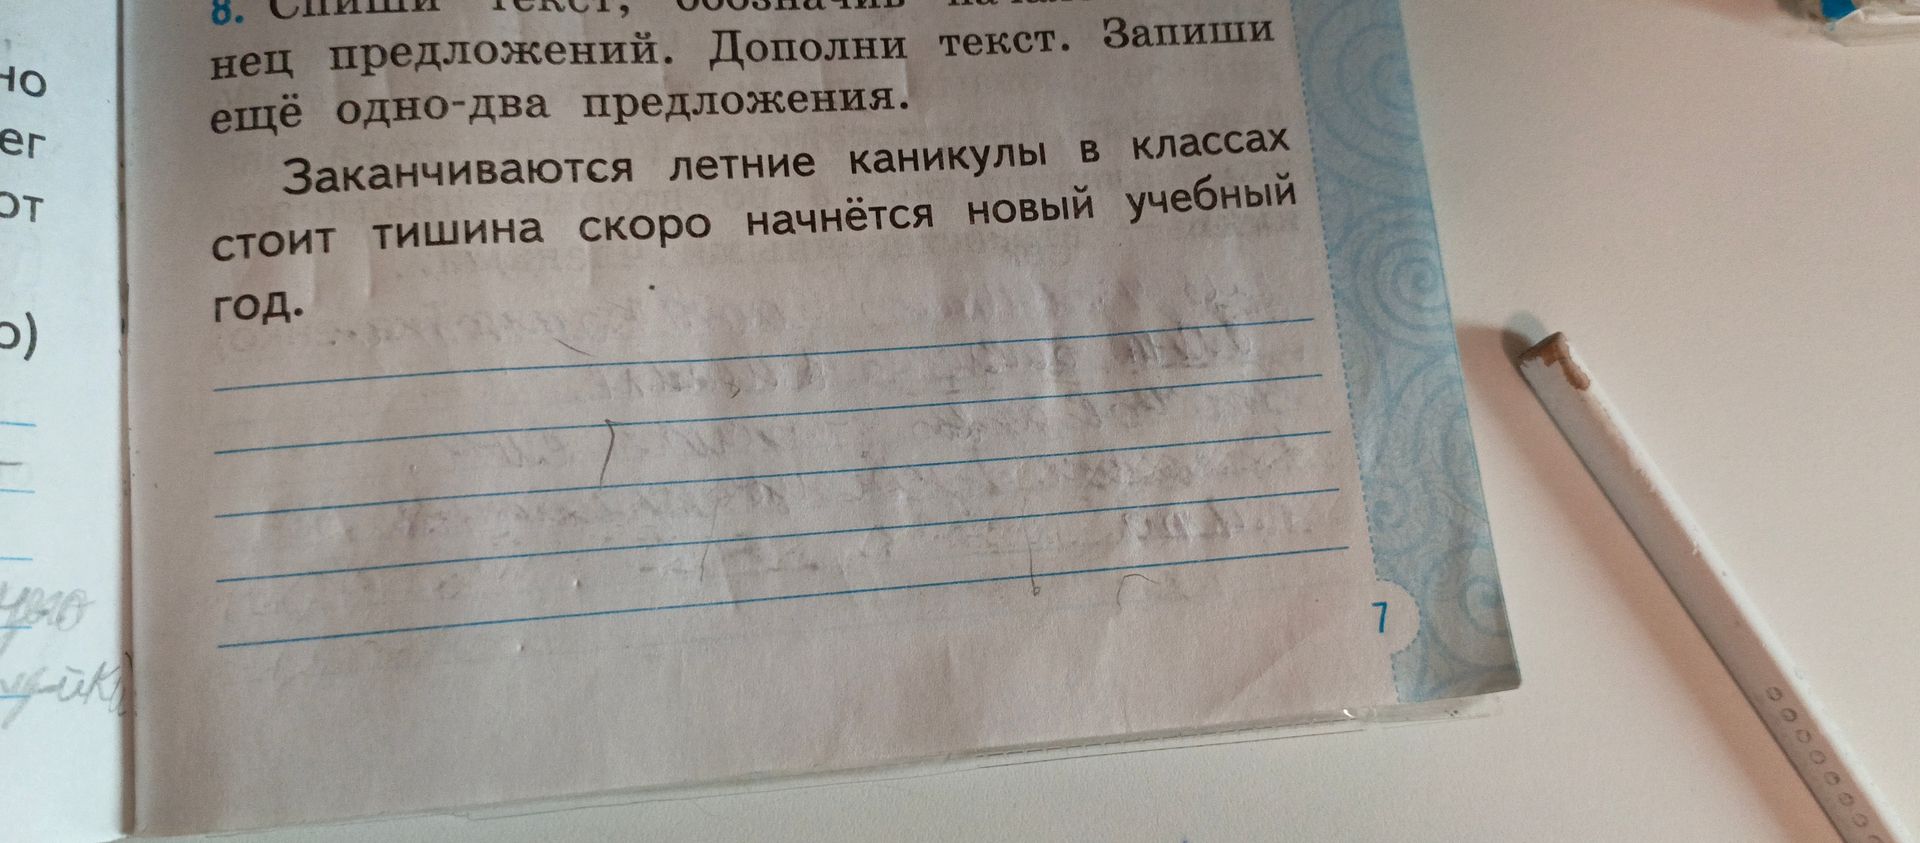 8. Спиши текст, обозначив
нец предложений. Дополни текст. Запиши
ещё одно-два предложения.
Заканчиваются летние каникулы в классах
стоит тишина скоро начнётся новый учебный
год.
7
но
ег
от
о)